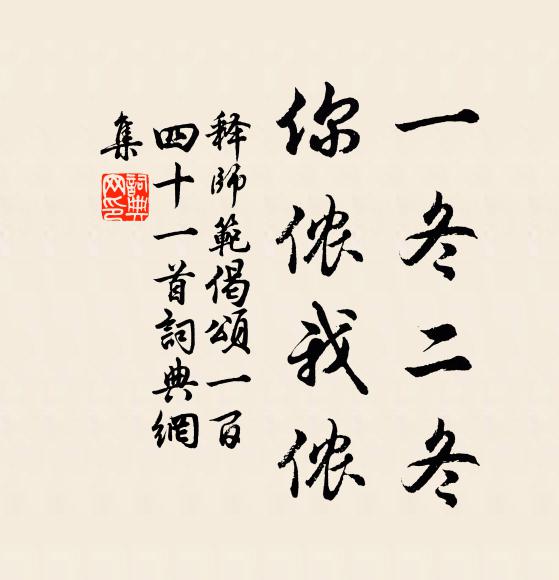 一冬二冬
你侬我侬
释師範偈頌一百
四十一首詞典網
集
詞典
网印